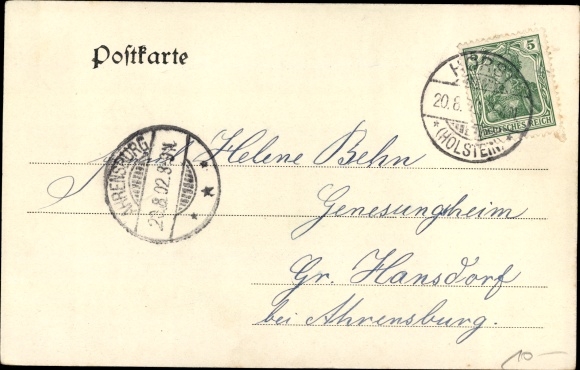 Postkarte
5
DEUTSCHES REICH
HORST
20.8.
* (HOLSTEIN) *
AHRENSBURG
20.8.02.
Helene Behn
Genesungheim
Gr. Hansdorf
bei Ahrensburg.
10-